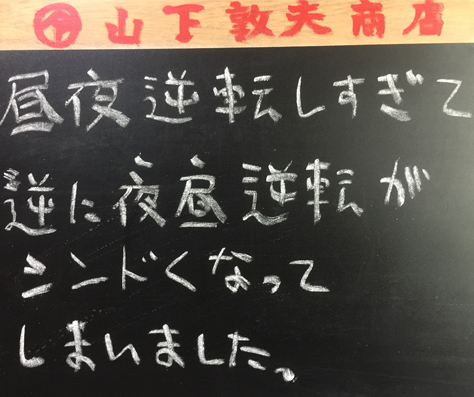 山下敦夫商店
昼夜逆転しすぎて
逆に夜昼逆転が
シンドくなって
しまいました。